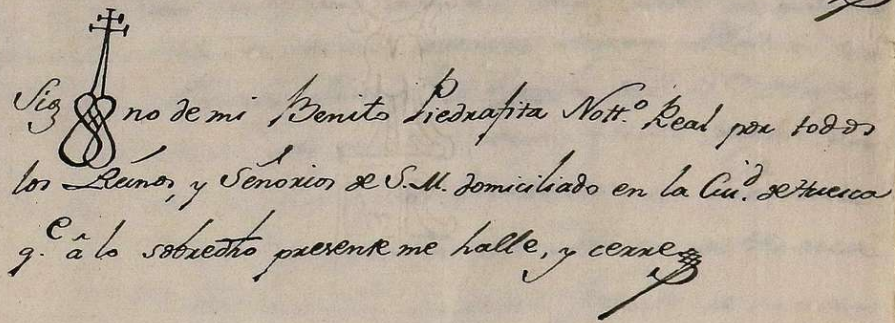 Sig no de mi Benito Piedrafita Nott.º Real por todos
los Reinos, y Señorios de S. M. domiciliado en la Ciu.d de Huesca
q.e â lo sobredho presente me halle, y cerre